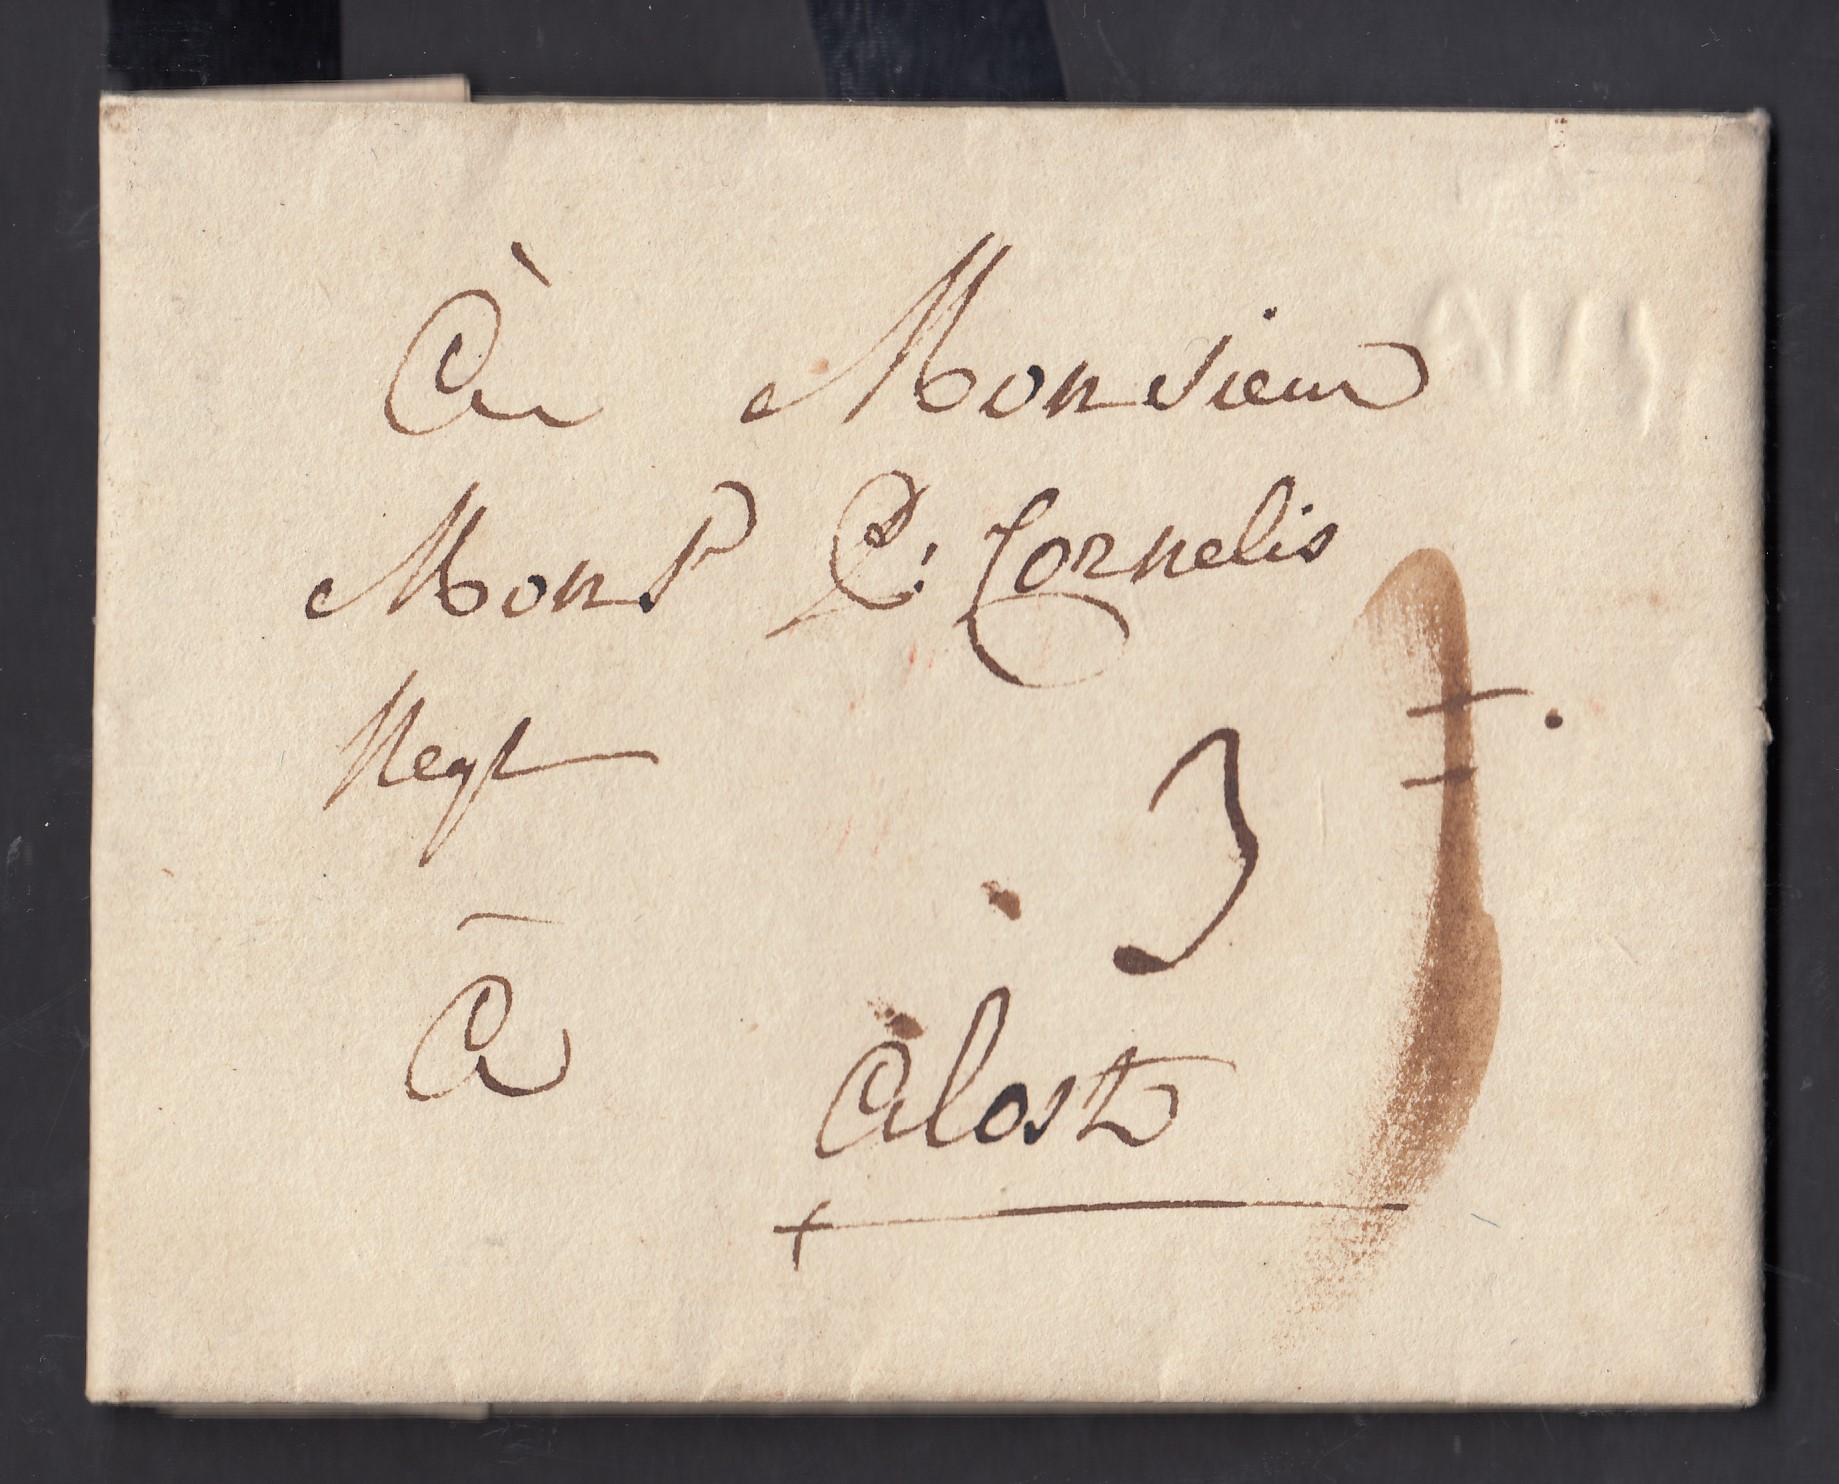 À Monsieur
Monsr C: Cornelis
Negt
3
à
Alost